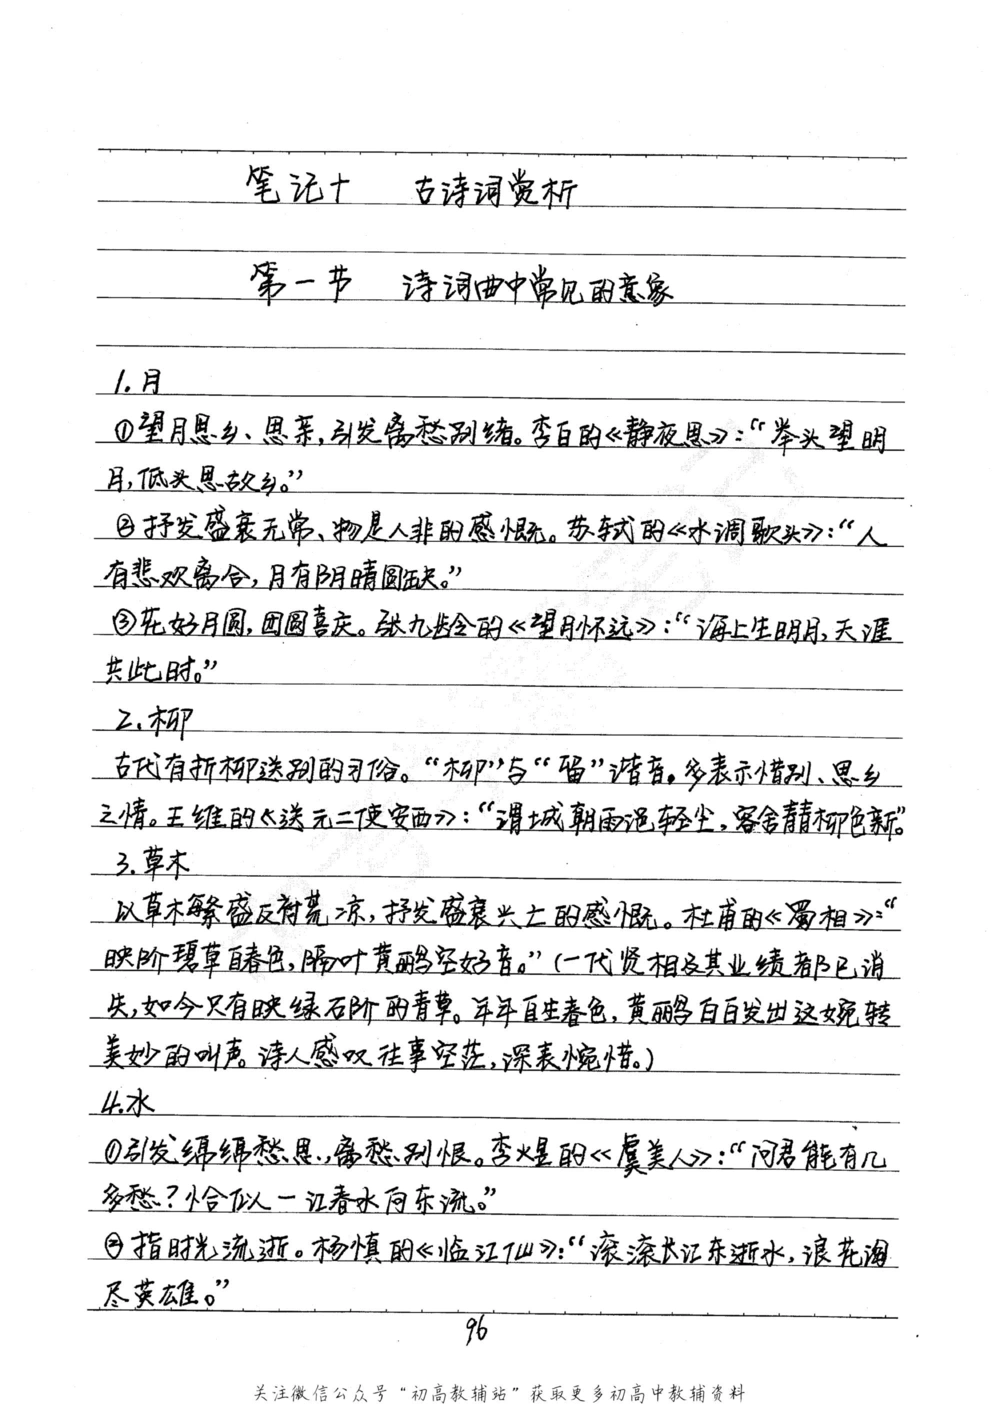 笔记十 古诗词赏析
第一节 诗词曲中常见的意象
1.月
①望月思乡、思亲,引发离愁别绪。李白的《静夜思》:“举头望明
月,低头思故乡。”
②抒发盛衰无常、物是人非的感慨。苏轼的《水调歌头》:“人
有悲欢离合,月有阴晴圆缺。”
③花好月圆,团圆喜庆。张九龄的《望月怀远》:“海上生明月,天涯
共此时。”
2.柳
古代有折柳送别的习俗。“柳”与“留”谐音。多表示惜别、思乡
之情。王维的《送元二使安西》:“渭城朝雨浥轻尘,客舍青青柳色新。”
3.草木
以草木繁盛反衬荒凉,抒发盛衰兴亡的感慨。杜甫的《蜀相》:“
映阶碧草自春色,隔叶黄鹂空好音。”(一代贤相及其业绩都已消
失,如今只有映绿石阶的青草。年年自生春色,黄鹂白白发出这婉转
美妙的叫声。诗人感叹往事空茫,深表惋惜。)
4.水
①引发绵绵愁思,离愁别恨。李煜的《虞美人》:“问君能有几
多愁?恰似一江春水向东流。”
②指时光流逝。杨慎的《临江仙》:“滚滚长江东逝水,浪花淘
尽英雄。”
96
关注微信公众号“初高教辅站”获取更多初高中教辅资料